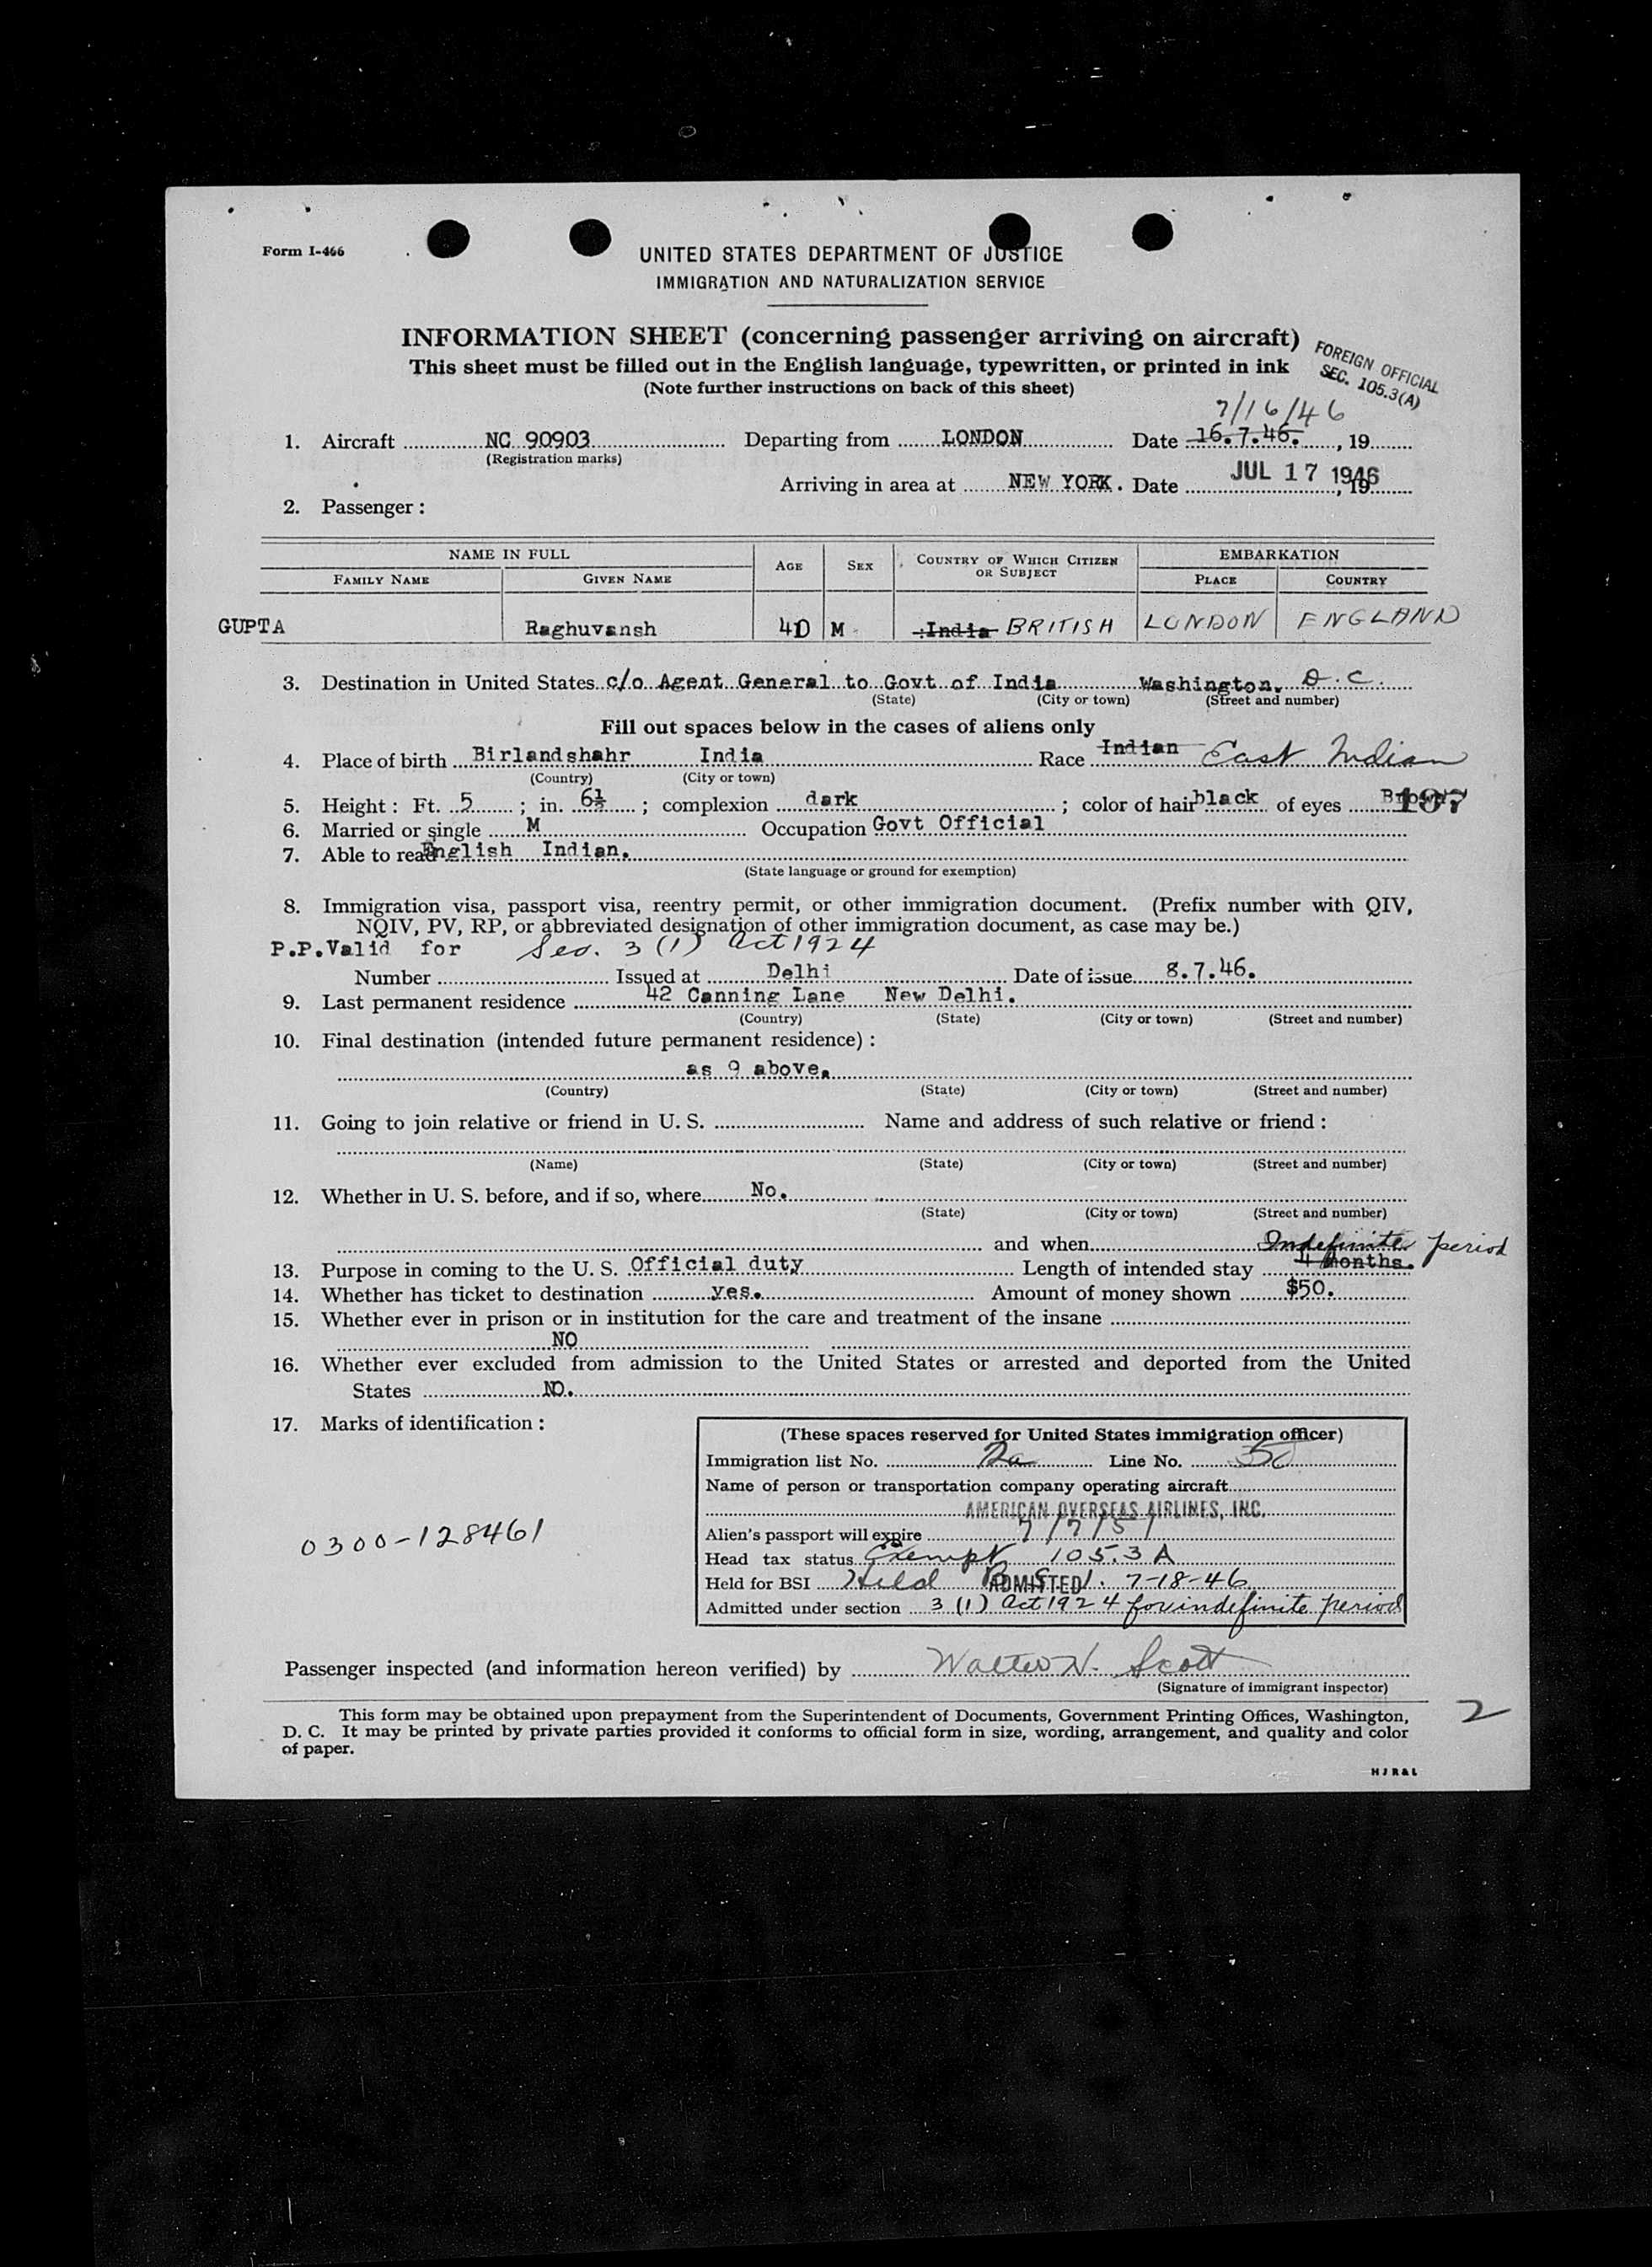 Form I-466
UNITED STATES DEPARTMENT OF JUSTICE
IMMIGRATION AND NATURALIZATION SERVICE
INFORMATION SHEET (concerning passenger arriving on aircraft)
This sheet must be filled out in the English language, typewritten, or printed in ink
(Note further instructions on back of this sheet)
FOREIGN OFFICIAL
SEC. 105.3(A)
7/16/46
1. Aircraft NC 90903 Departing from LONDON Date 16.7.46. , 19
(Registration marks)
Arriving in area at NEW YORK. Date JUL 17 1946 , 19
2. Passenger :
NAME IN FULL AGE SEX COUNTRY OF WHICH CITIZEN OR SUBJECT EMBARKATION
FAMILY NAME GIVEN NAME PLACE COUNTRY
GUPTA Raghuvansh 40 M India BRITISH LONDON ENGLAND
3. Destination in United States c/o Agent General to Govt of India Washington, D.C.
(State) (City or town) (Street and number)
Fill out spaces below in the cases of aliens only
4. Place of birth Birlandshahr India Race Indian East Indian
(Country) (City or town)
5. Height : Ft. 5 ; in. 6½ ; complexion dark ; color of hair black of eyes Brown 107
6. Married or single M Occupation Govt Official
7. Able to read English Indian.
(State language or ground for exemption)
8. Immigration visa, passport visa, reentry permit, or other immigration document. (Prefix number with QIV,
NQIV, PV, RP, or abbreviated designation of other immigration document, as case may be.)
P.P.Valid for Sec. 3 (1) Act 1924
Number Issued at Delhi Date of issue 8.7.46.
9. Last permanent residence 42 Canning Lane New Delhi.
(Country) (State) (City or town) (Street and number)
10. Final destination (intended future permanent residence) :
as 9 above.
(Country) (State) (City or town) (Street and number)
11. Going to join relative or friend in U. S. Name and address of such relative or friend :
(Name) (State) (City or town) (Street and number)
12. Whether in U. S. before, and if so, where No.
(State) (City or town) (Street and number)
and when Indefinite period
13. Purpose in coming to the U. S. Official duty Length of intended stay 4 Months.
14. Whether has ticket to destination yes. Amount of money shown $50.
15. Whether ever in prison or in institution for the care and treatment of the insane
NO
16. Whether ever excluded from admission to the United States or arrested and deported from the United
States NO.
17. Marks of identification :
0300-128461
(These spaces reserved for United States immigration officer)
Immigration list No. 2a Line No. 50
Name of person or transportation company operating aircraft
AMERICAN OVERSEAS AIRLINES, INC.
Alien's passport will expire 7/7/51
Head tax status Exempt 105.3 A
Held for BSI Held B.S.I. ADMITTED 7-18-46
Admitted under section 3 (1) Act 1924 for indefinite period
Passenger inspected (and information hereon verified) by Walter N. Scott
(Signature of immigrant inspector)
2
This form may be obtained upon prepayment from the Superintendent of Documents, Government Printing Offices, Washington,
D. C. It may be printed by private parties provided it conforms to official form in size, wording, arrangement, and quality and color
of paper.
HJR&L